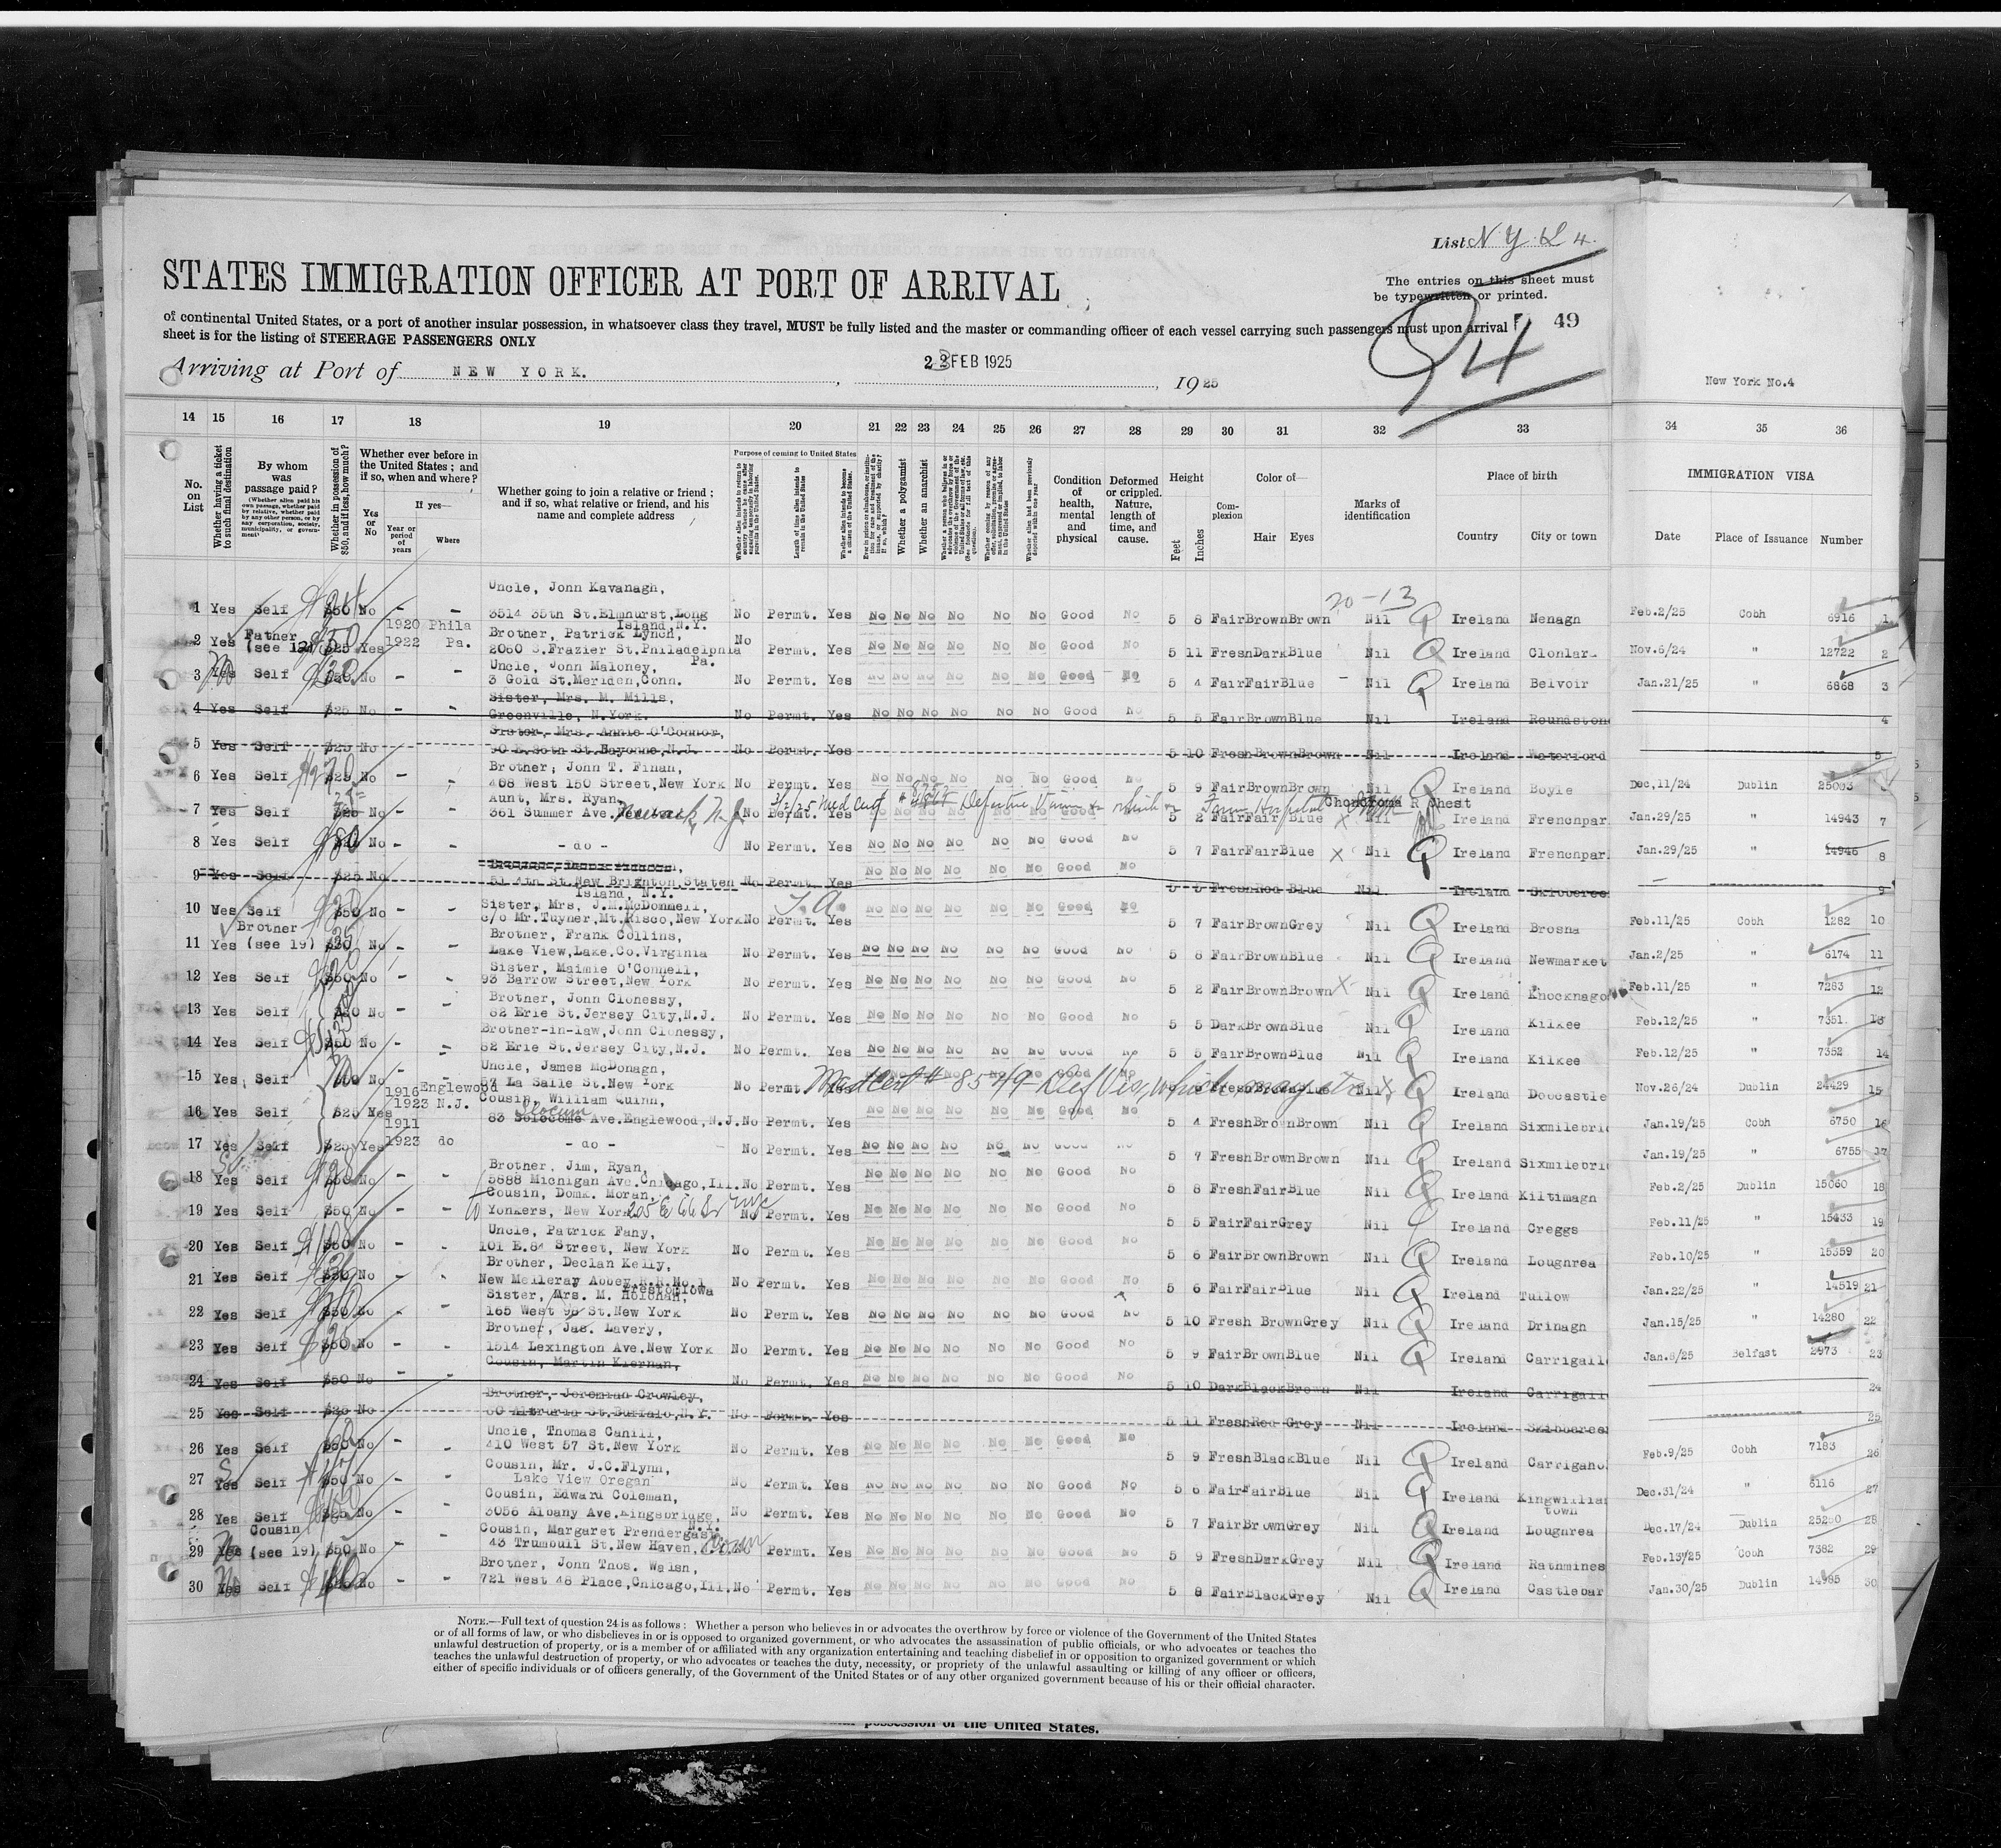 List N Y L 4.
STATES IMMIGRATION OFFICER AT PORT OF ARRIVAL
The entries on this sheet must
be typewritten or printed.
of continental United States, or a port of another insular possession, in whatsoever class they travel, MUST be fully listed and the master or commanding officer of each vessel carrying such passengers must upon arrival
49
sheet is for the listing of STEERAGE PASSENGERS ONLY
94
Arriving at Port of NEW YORK. , FEB 1925 , 1925
New York No.4
14 15 16 17 18 19 20 21 22 23 24 25 26 27 28 29 30 31 32 33 34 35 36
No. on List
Whether having a ticket to such final destination
By whom was passage paid?
(Whether alien paid his own passage, whether paid by relative, whether paid by any other person, or by any corporation, society, municipality, or government)
Whether in possession of $50, and if less, how much?
Whether ever before in the United States; and if so, when and where?
Yes or No
If yes—
Year or period of years
Where
Whether going to join a relative or friend; and if so, what relative or friend, and his name and complete address
Purpose of coming to United States
Length of time alien intends to remain in the United States
Whether alien intends to become a citizen of the United States.
Whether a polygamist
Whether an anarchist
Condition of health, mental and physical
Deformed or crippled. Nature, length of time, and cause.
Height
Feet
Inches
Complexion
Color of—
Hair
Eyes
Marks of identification
Place of birth
Country
City or town
IMMIGRATION VISA
Date
Place of Issuance
Number
20-13
1 Yes Self $50 No - - Uncle, John Kavanagh, 3514 35th St. Elmhurst, Long Island, N.Y. No Permt. Yes No No No No No No Good No 5 8 Fair Brown Brown Nil Ireland Nenagh Feb.2/25 Cobh 6916 1
2 Yes Father (see 12) $25 Yes 1920 1922 Phila Pa. Brother, Patrick Lynch, 2060 S. Frazier St. Philadelphia Pa. No Permt. Yes No No No No No No Good No 5 11 Fresh Dark Blue Nil Ireland Nov.6/24 " 12722 2
3 Yes Self No - - Uncle, John Maloney, 3 Gold St. Meriden, Conn. No Permt. Yes No No No No No No Good No 5 4 Fair Fair Blue Nil Ireland Belvoir Jan.21/25 " 6868 3
4 Yes Self $25 No - - Sister, Mrs. M. Mills, Greenville, N.York. No Permt. Yes No No No No No No Good No 5 5 Fair Brown Blue Nil Ireland Roundstone 4
5 Yes Self $25 No Sister, Mrs. Annie O'Connor, Bayonne, N.J. No Permt. Yes 5 10 Fresh Brown Brown Nil Ireland Waterford 5
6 Yes Self $25 No - - Brother, John T. Finan, 408 West 150 Street, New York No Permt. Yes No No No No No No Good No 5 9 Fair Brown Brown Nil Ireland Boyle Dec,11/24 Dublin 25003
7 Yes Self $25 No - - Aunt, Mrs. Ryan, 361 Summer Ave. Newark N.J. No Permt. Yes 3/2/25 Med Cert Chondroma R Chest 5 2 Fair Fair Blue Nil Ireland Frenchpar Jan.29/25 " 14943 7
8 Yes Self No - - - do - No Permt. Yes No No No No No No Good No 5 7 Fair Fair Blue Nil Ireland Frenchpar Jan.29/25 " 14946 8
9 Yes Self $25 No 51 4th St. New Brighton, Staten Island, N.Y. No Permt. Yes No No No No No No Good No 5 5 Fresh Red Blue Nil Ireland Skibberee 9
10 Yes Self $50 No - - Sister, Mrs. J.M.McDonnell, c/o Mr. Tuyner, Mt. Kisco, New York No Permt. Yes No No No No No No Good No 5 7 Fair Brown Grey Nil Ireland Brosna Feb.11/25 Cobh 1282 10
11 Yes Brother (see 19) No - Brother, Frank Collins, Lake View, Lake. Co. Virginia No Permt. Yes No No No No No No Good No 5 8 Fair Brown Blue Nil Ireland Newmarket Jan.2/25 " 6174 11
12 Yes Self $50 No - - Sister, Maimie O'Connell, 93 Barrow Street, New York No Permt. Yes No No No No No No Good No 5 2 Fair Brown Brown Nil Ireland Knocknago Feb.11/25 " 7283 12
13 Yes Self No - - Brother, John Clonessy, 82 Erie St. Jersey City, N.J. No Permt. Yes No No No No No No Good No 5 5 Dark Brown Blue Nil Ireland Kilkee Feb.12/25 " 7351. 13
14 Yes Self $50 No - - Brother-in-law, John Clonessy, 82 Erie St. Jersey City, N.J. No Permt. Yes No No No No No No Good No 5 5 Fair Brown Blue Nil Ireland Kilkee Feb.12/25 " 7352 14
15 Yes Self No - - Uncle, James McDonagh, La Salle St. New York No Permt. Med Cert # 8549 Def Vis, which may Nil Ireland Doocastle Nov.26/24 Dublin 24429 15
16 Yes Self $25 Yes 1916 1923 Englewood N.J. Cousin, William Quinn, 83 Slocum Ave. Englewood, N.J. No Permt. Yes No No No No No No Good No 5 4 Fresh Brown Brown Nil Ireland Sixmilebri Jan.19/25 Cobh 6750 16
17 Yes Self $25 Yes 1911 1923 do - do - No Permt. Yes No No No No No No Good No 5 7 Fresh Brown Brown Nil Ireland Sixmilebri Jan.19/25 " 6755 17
18 Yes Self $50 No - - Brother, Jim, Ryan, 5688 Michigan Ave. Chicago, Ill. No Permt. Yes No No No No No No Good No 5 8 Fresh Fair Blue Nil Ireland Kiltimagh Feb.2/25 Dublin 15060 18
19 Yes Self $50 No - - Cousin, Domk. Moran, Yonkers, New York 205 E 66 St NYC No Permt. Yes No No No No No No Good No 5 5 Fair Fair Grey Nil Ireland Creggs Feb.11/25 " 15433 19
20 Yes Self $50 No - - Uncle, Patrick Fahy, 101 E.84 Street, New York No Permt. Yes No No No No No No Good No 5 6 Fair Brown Brown Nil Ireland Loughrea Feb.10/25 " 15359 20
21 Yes Self No - - Brother, Declan Kelly, New Melleray Abbey, R.R.No.1 Iowa No Permt. Yes No No No No No No Good No 5 6 Fair Fair Blue Nil Ireland Tullow Jan.22/25 " 14519 21
22 Yes Self $50 No - - Sister, Mrs. M. Holohan, 165 West 96 St. New York No Permt. Yes No No No No No No Good No 5 10 Fresh Brown Grey Nil Ireland Drinagh Jan.15/25 " 14280 22
23 Yes Self $50 No - - Brother, Jas. Lavery, 1514 Lexington Ave. New York No Permt. Yes No No No No No No Good No 5 9 Fair Brown Blue Nil Ireland Carrigall Jan.8/25 Belfast 2973 23
24 Yes Self $50 No - - Cousin, Martin Kiernan, No Permt. Yes No No No No No No Good No 5 10 Dark Black Brown Nil Ireland Carrigall 24
25 Yes Self $25 No Brother, Jeremiah Crowley, St. Buffalo, N.Y. No Permt. Yes 5 11 Fresh Red Grey Nil Ireland Skibberee 25
26 Yes Self $50 No - - Uncle, Thomas Cahill, 410 West 57 St. New York No Permt. Yes No No No No No No Good No 5 9 Fresh Black Blue Nil Ireland Carrigaho Feb.9/25 Cobh 7183 26
27 Yes Self $50 No - - Cousin, Mr. J.C.Flynn, Lake View Oregan No Permt. Yes No No No No No No Good No 5 6 Fair Fair Blue Nil Ireland Kingwilliam town Dec.31/24 " 6116 27
28 Yes Self $25 No - - Cousin, Edward Coleman, 3056 Albany Ave. Kingsbridge, N.Y. No Permt. Yes No No No No No No Good No 5 7 Fair Brown Grey Nil Ireland Loughrea Dec.17/24 Dublin 25250 28
29 Yes Cousin (see 19) $50 No - - Cousin, Margaret Prendergast, 43 Trumbull St. New Haven, Conn No Permt. Yes No No No No No No Good No 5 9 Fresh Dark Grey Nil Ireland Rathmines Feb.13/25 Cobh 7382 29
30 Yes Self No - - Brother, John Thos. Walsh, 721 West 48 Place, Chicago, Ill. No Permt. Yes No No No No No No Good No 5 8 Fair Black Grey Nil Ireland Castlebar Jan.30/25 Dublin 14985 30
NOTE.—Full text of question 24 is as follows: Whether a person who believes in or advocates the overthrow by force or violence of the Government of the United States
or of all forms of law, or who disbelieves in or is opposed to organized government, or who advocates the assassination of public officials, or who advocates or teaches the
unlawful destruction of property, or is a member of or affiliated with any organization entertaining and teaching disbelief in or opposition to organized government or which
teaches the unlawful destruction of property, or who advocates or teaches the duty, necessity, or propriety of the unlawful assaulting or killing of any officer or officers,
either of specific individuals or of officers generally, of the Government of the United States or of any other organized government because of his or their official character.
possession of the United States.